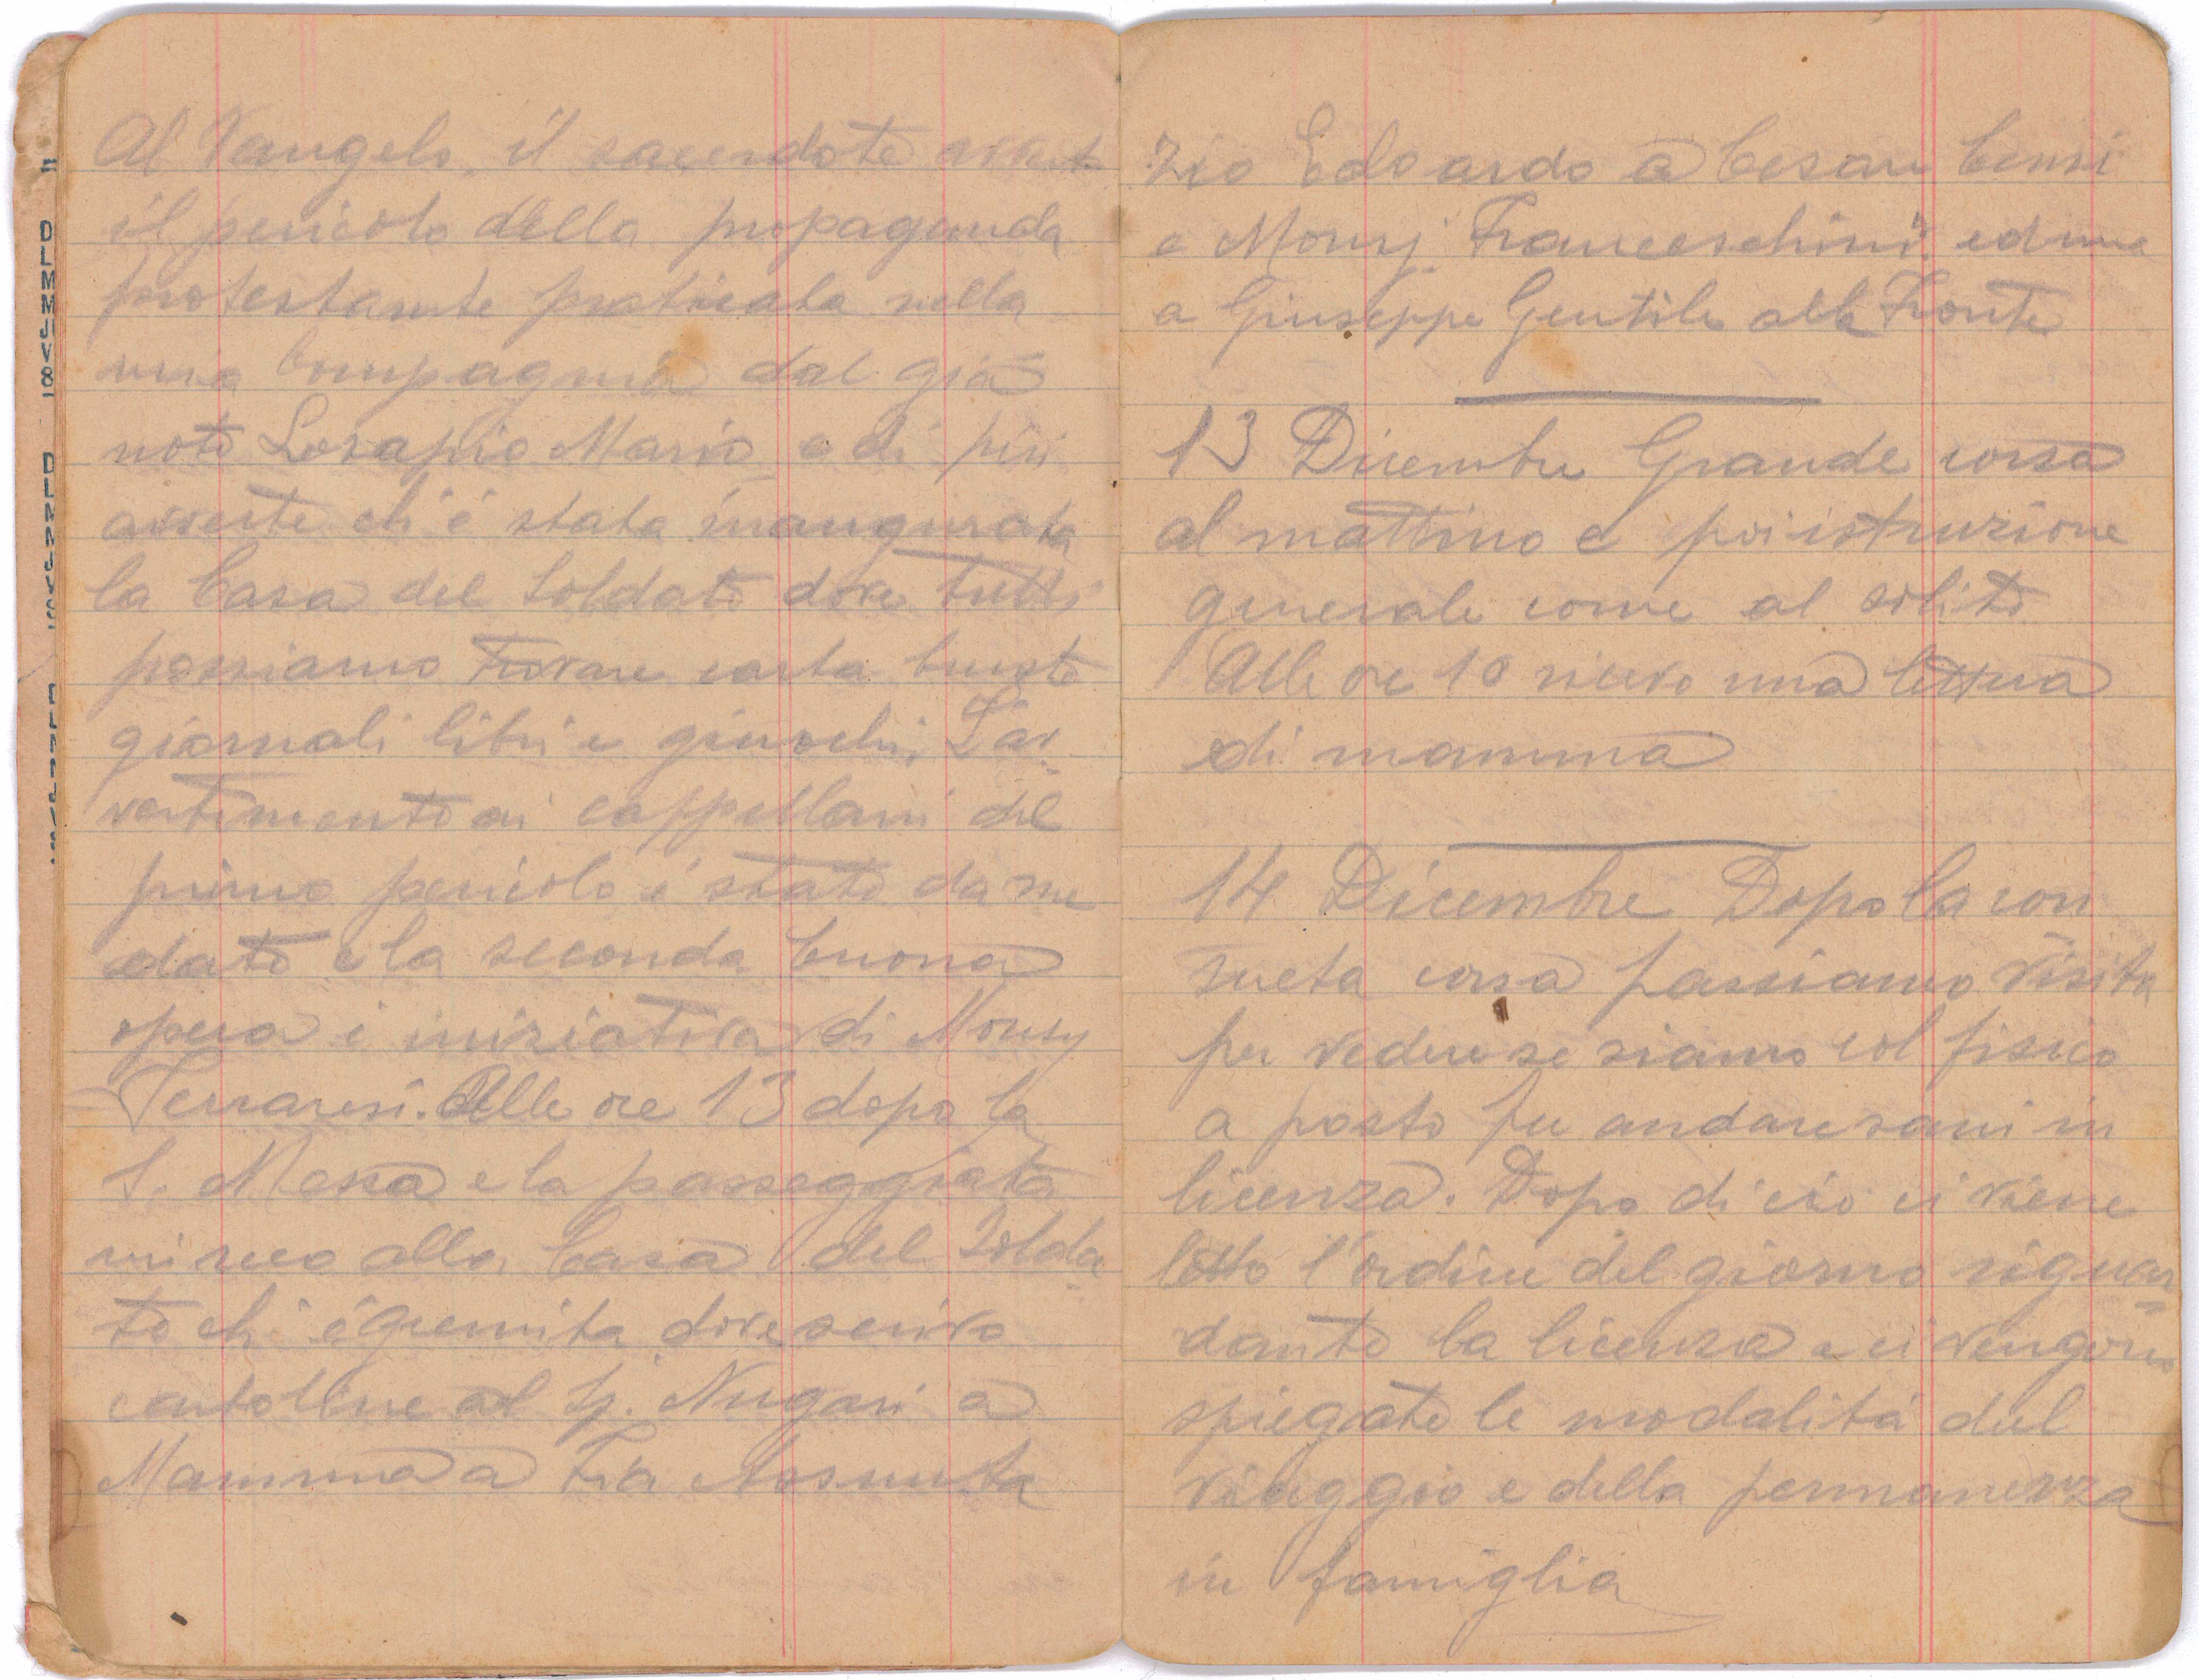 Al Vangelo, il sacerdote avverte
il pericolo della propaganda
protestante praticata nella
mia Compagnia dal già
noto Losapio Mario e di più
avverte ch'è stata inaugurata
la Casa del Soldato dove tutti
possiamo trovare carta buste
giornali libri e giuochi. L'av
vertimento ai cappellani del
primo pericolo è stato da me
dato e la seconda buona
opera è iniziativa di Monsg
Ferraresi. Alle ore 13 dopo la
S. Messa e la passeggiata
mi reco alla Casa del Solda
to ch'è gremita dove scrivo
cartoline al Sg. Nugari a
Mamma a Zia Assunta
Zio Edoardo a Cesare Censi
e Monsg. Franceschini ed una
a Giuseppe Gentile alla Fronte
13 Dicembre Grande corsa
al mattino e poi istruzione
generale come al solito
Alle ore 10 ricevo una lettera
di mamma
14 Dicembre Dopo la con
sueta corsa passiamo visita
per vedere se siamo col fisico
a posto per andare sani in
licenza. Dopo di ciò ci viene
letto l'ordine del giorno riguar=
dante la licenza e ci vengono
spiegate le modalità del
viaggio e della permanenza
in famiglia